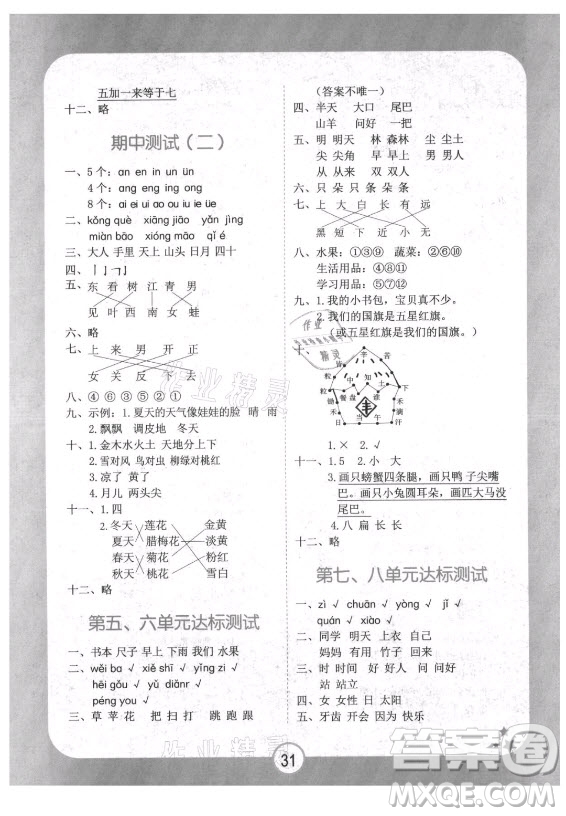 五加一来等于七
十二、略
期中测试（二）
一、5个：an en in un ün
4个：ang eng ing ong
8个：ai ei ui ao ou iu ie üe
二、kǒng què xiāng jiāo yǎn jìng
miàn bāo mó xiāo qǐ é
三、大人 手里 天上 山头 日月 四十
五、东 看 树 江 青 男
见 叶 西 南 女 蛙
六、略
七、上 来 男 开 正
女 关 反 下 去
八、④⑥③①⑤②
九、示例：1.夏天的天气像娃娃的脸 晴 雨
2.飘飘 调皮地 冬天
十、1.金木水火土 天地分上下
2.雪对风 花对树 山清对水秀 柳绿对桃红
3.凉了 黄了
4.月儿 两头尖
十一、1.四
2.冬天 莲花 金黄
夏天 腊梅花 淡黄
春天 菊花 粉红
秋天 桃花
十二、略
第五、六单元达标测试
一、书本 尺子 早上 下雨 我们 水果
二、wěi ba √ xiě shī √ yīng zi √
hēi gǒu √ yǔ diǎnr √
péng you √
三、草 苹 花 把 扫 打 跳 跑 跟
（答案不唯一）
四、半天 大口 尾巴
山羊 好问 前方
五、明 明天 林 森林 尘 尘土
尖 尖角 早 早上 男 男人
从 从人 双 双人
六、只 朵 只 条 朵 条
七、上 大 白 长 有 远
黑 短 下 近 小 无
八、水果：①③⑨ 蔬菜：②⑥⑩
生活用品：④⑧⑪
学习用品：⑤⑦⑫
九、1.我的小书包，宝贝真不少。
2.我们的国旗是五星红旗。
（或五星红旗是我们的国旗。）
十、
1.× 2.√
十一、1.5 2.小 大
3.画只螃蟹四条腿，画只鸭子尖嘴
巴。画只小兔圆耳朵，画匹大马没
尾巴。
4.八 扁 长 长
十二、略
第七、八单元达标测试
一、zì √ chuān √ yòng √ jǐ √
quán √ xiào √
二、同学 明天 上午 自己
妈妈 有用 什么
三、时 时间 好 好人 问 问好
站 站立
四、女 女生 日 太阳
五、牙齿 开会 因为 快乐
31
作业精灵
答案圈
MXQE.COM